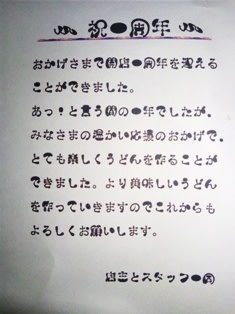 祝●周年
おかげさまで開店●周年を迎える
ことができました。
あっ！と言う間の●年でしたが、
みなさまの温かい応援のおかげで、
とても楽しくうどんを作ることが
できました。より美味しいうどん
を作っていきますのでこれからも
よろしくお願いします。
店主とスタッフ●同